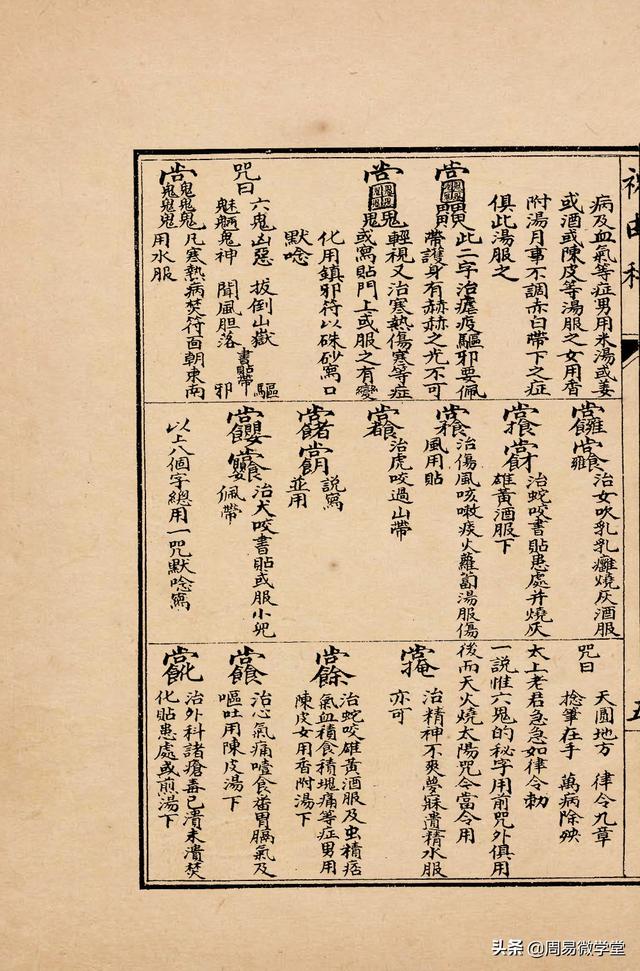 病及血氣等症男用米湯或姜
或酒或陳皮等湯服之女用香
附湯月事不調赤白帶下之症
俱此湯服之
此二字治瘧疾驅邪要佩
帶護身有赫赫之光不可
輕視又治寒熱傷寒等症
或寫貼門上或服之有變
化用鎮邪符以硃砂寫口
默唸
咒曰
六鬼凶惡 拔倒山嶽 驅
魅魎鬼神 聞風胆落 邪
書貼帶
凡寒熱病焚符面朝東南
用水服
治女吹乳乳癰燒灰酒服
治蛇咬書貼患處并燒灰
雄黃酒服下
治傷風咳嗽痰火蘿蔔湯服傷
風用貼
治虎咬過山帶
説寫
並用
治犬咬書貼或服小兒
佩帶
以上八個字總用一咒默唸寫
咒曰
天圓地方 律令九章
捻筆在手 萬病除殃
太上老君急急如律令勅
一説惟六鬼的秘字用前咒外俱用
後而天火燒太陽咒令當令用
治精神不爽夢寐遺精水服
亦可
治蛇咬雄黃酒服及虫積痞
氣血積食積塊痛等症男用
陳皮女用香附湯下
治心氣痛噎食番胃膈氣及
嘔吐用陳皮湯下
治外科諸瘡毒已潰未潰焚
化貼患處或煎湯下
头条 @周易微学堂